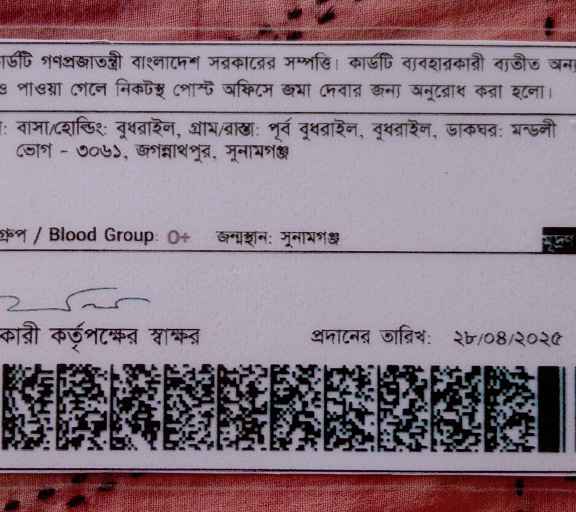 কার্ডটি গণপ্রজাতন্ত্রী বাংলাদেশ সরকারের সম্পত্তি। কার্ডটি ব্যবহারকারী ব্যতীত অন্য
ও পাওয়া গেলে নিকটস্থ পোস্ট অফিসে জমা দেবার জন্য অনুরোধ করা হলো।
: বাসা/হোল্ডিং: বুধরাইল, গ্রাম/রাস্তা: পূর্ব বুধরাইল, বুধরাইল, ডাকঘর: মন্ডলী
ভোগ - ৩০৬১, জগন্নাথপুর, সুনামগঞ্জ
গ্রুপ / Blood Group: O+ জন্মস্থান: সুনামগঞ্জ
মুদ্রণ
কারী কর্তৃপক্ষের স্বাক্ষর প্রদানের তারিখ: ২৮/০৪/২০২৫